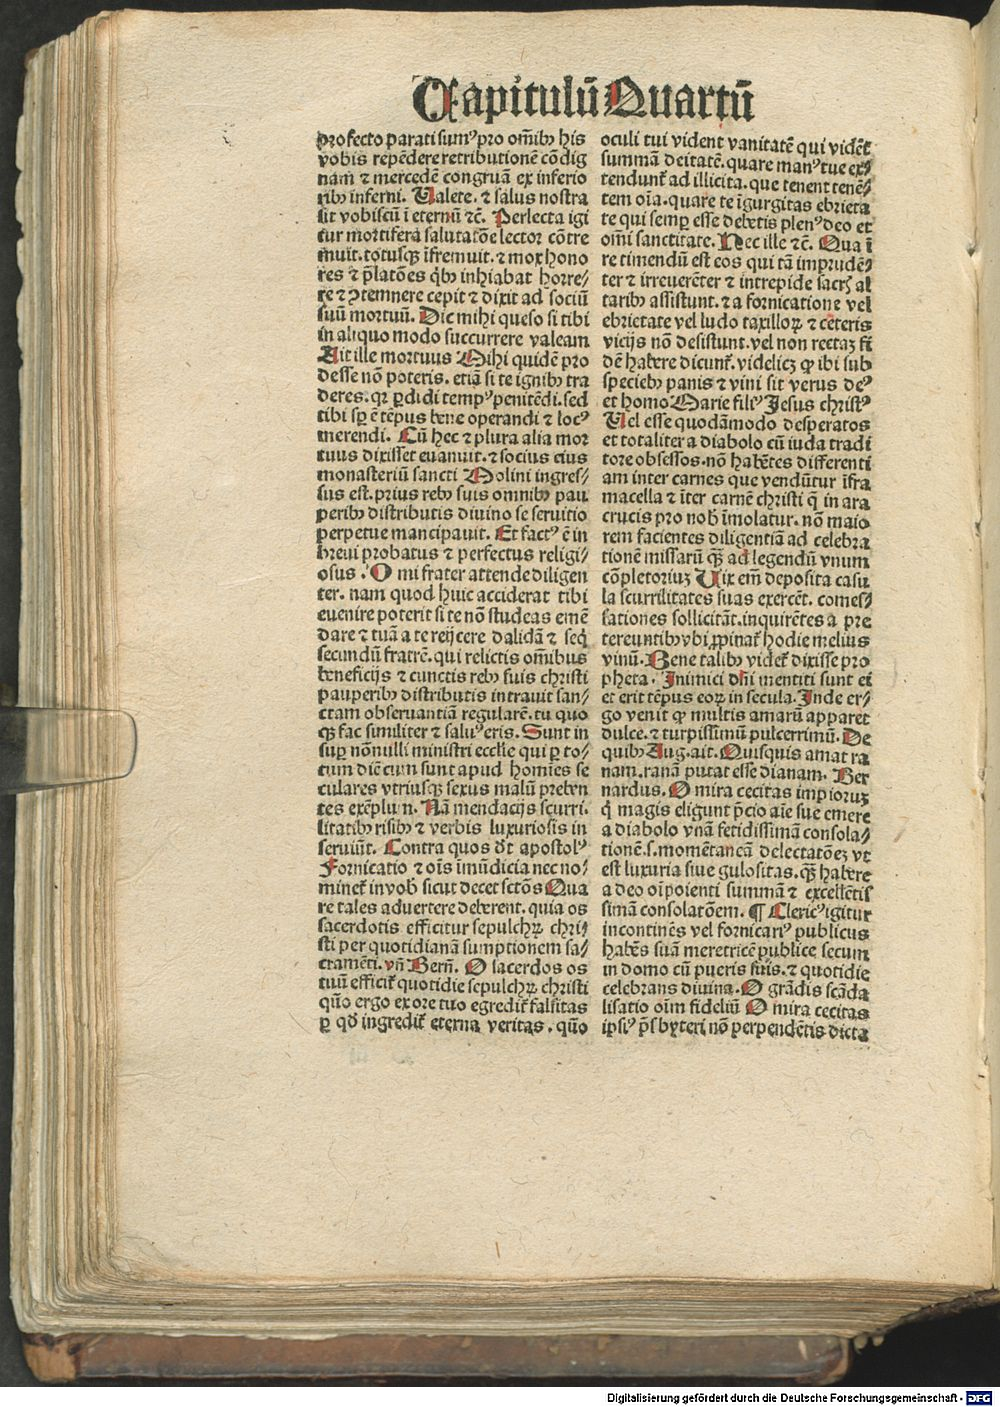 Capitulū Quartū
profecto parati sumꝰ pro om̄ibꝰ his
vobis repēdere retributionē cōdig
nam ⁊ mercedē congruā ex inferio
ribꝰ inferni. Valete. ⁊ salus nostra
sit vobiscū ī eternū ⁊c̄. Perlecta igi
tur mortifera salutatōe lector cōtre
muit. totusqꝫ īfremuit. ⁊ mox hono
res ⁊ p̄latōes qͥbꝰ inhiabat horre⸗
re ⁊ ꝯtemnere cepit ⁊ dixit ad sociū
suū mortuū. Dic mihi queso si tibi
in aliquo modo succurrere valeam
Ait ille mortuus Mihi quidē pro
desse nō poteris. etiā si te ignibꝰ tra
deres. qꝛ ꝑdidi tempꝰ penitēdi. sed
tibi sꝑ ē tēpus bene operandi ⁊ locꝰ
merendi. Cū hec ⁊ plura alia mor
tuus dixisset euanuit. ⁊ socius eius
monasteriū sancti Molini ingres⸗
sus est. prius rebꝰ suis omnibꝰ pau
peribꝰ distributis diuino se seruitio
perpetue mancipauit. Et factꝰ ē in
breui probatus ⁊ perfectus religi⸗
osus. O mi frater attende diligen
ter. nam quod huic acciderat tibi
euenire poterit si te nō studeas emē
dare ⁊ tuā a te reijcere dalidā ⁊ seqͥ
secundū fratrē. qui relictis om̄ibus
beneficijs ⁊ cunctis rebꝰ suis christi
pauperibꝰ distributis intrauit san⸗
ctam obseruantiā regularē. tu quo
qꝫ fac similiter ⁊ saluꝰ eris. Sunt in
suꝑ nōnulli ministri eccl̄ie qui ꝑ to⸗
tum diē cum sunt apud homies se
culares vtriusqꝫ sexus malū preben
tes exēplum. Nā mendacijs scurri⸗
litatibꝰ risibꝰ ⁊ verbis luxuriosis in
seruiūt. Contra quos dt̄ apostolꝰ
Fornicatio ⁊ oīs īmūdicia nec no⸗
minet᷑ in vob̄ sicut decet sctōs Qua
re tales aduertere deberent. quia os
sacerdotis efficitur sepulchꝝ chri⸗
sti per quotidianā sumptionem sa⸗
cramēti. vn̄ Bern̄. O sacerdos os
tuū efficit᷑ quotidie sepulchꝝ christi
quō ergo ex ore tuo egredit᷑ falsitas
ꝑ qd̄ ingredit᷑ eterna veritas. quō
oculi tui vident vanitatē qui vidēt
summā deitatē. quare manꝰ tue ex⸗
tendunt᷑ ad illicita. que tenent tenē⸗
tem oīa. quare te īgurgitas ebrieta
te qui semꝑ esse debetis plenꝰ deo et
om̄i sanctitate. Nec ille ⁊c̄. Qua ī
re timendū est eos qui tā imprudē⸗
ter ⁊ irreuerēter ⁊ intrepide sacrꝭ al
taribꝰ assistunt. ⁊ a fornicatione vel
ebrietate vel ludo taxilloꝝ ⁊ ceteris
vicijs nō desistunt. vel non rectaꝫ fi
dē habere dicunt᷑. videlicꝫ ꝙ ibi sub
speciebꝰ panis ⁊ vini sit verus deꝰ
et homo Marie filiꝰ Jesus christꝰ
Vel esse quodāmodo desperatos
et totaliter a diabolo cū iuda tradi
tore obsessos. nō habētes differenti
am inter carnes que vendūtur īfra
macella ⁊ īter carnē christi q̄ in ara
crucis pro nob̄ īmolatur. nō maio
rem facientes diligentiā ad celebra
tionē missarū qꝫ̄ ad legendū vnum
cōpletoriuꝫ Vix em̄ deposita casu
la scurrilitates suas exercēt. comes⸗
sationes sollicitāt. inquirētes a pre
tereuntibꝰ vbi ꝓpinat᷑ hodie melius
vinū. Bene talibꝰ videt᷑ dixisse pro
pheta. Inimici dn̄i mentiti sunt ei
et erit tēpus eoꝝ in secula. Inde er⸗
go venit ꝙ multis amarū apparet
dulce. ⁊ turpissimū pulcerrimū. De
quibꝰ Aug. ait. Quisquis amat ra
nam. ranā putat esse dianam. Ber
nardus. O mira cecitas impioruꝫ
qͥ magis eligunt p̄cio aīe sue emere
a diabolo vnā fetidissimā consola⸗
tionē. s. momētaneā delectatōeꝫ vt
est luxuria siue gulositas. qꝫ̄ habere
a deo oīpotenti summā ⁊ excellētis
simā consolatōem. ¶ Clericꝰ igitur
incontinēs vel fornicariꝰ publicus
habēs suā meretricē publice secum
in domo cū pueris suis. ⁊ quotidie
celebrans diuina. O grādis scāda
lisatio oīm fideliū O mira cecitas
ipsiꝰ p̄sbyteri nō perpendētis dicta
Digitalisierung gefördert durch die Deutsche Forschungsgemeinschaft - DFG